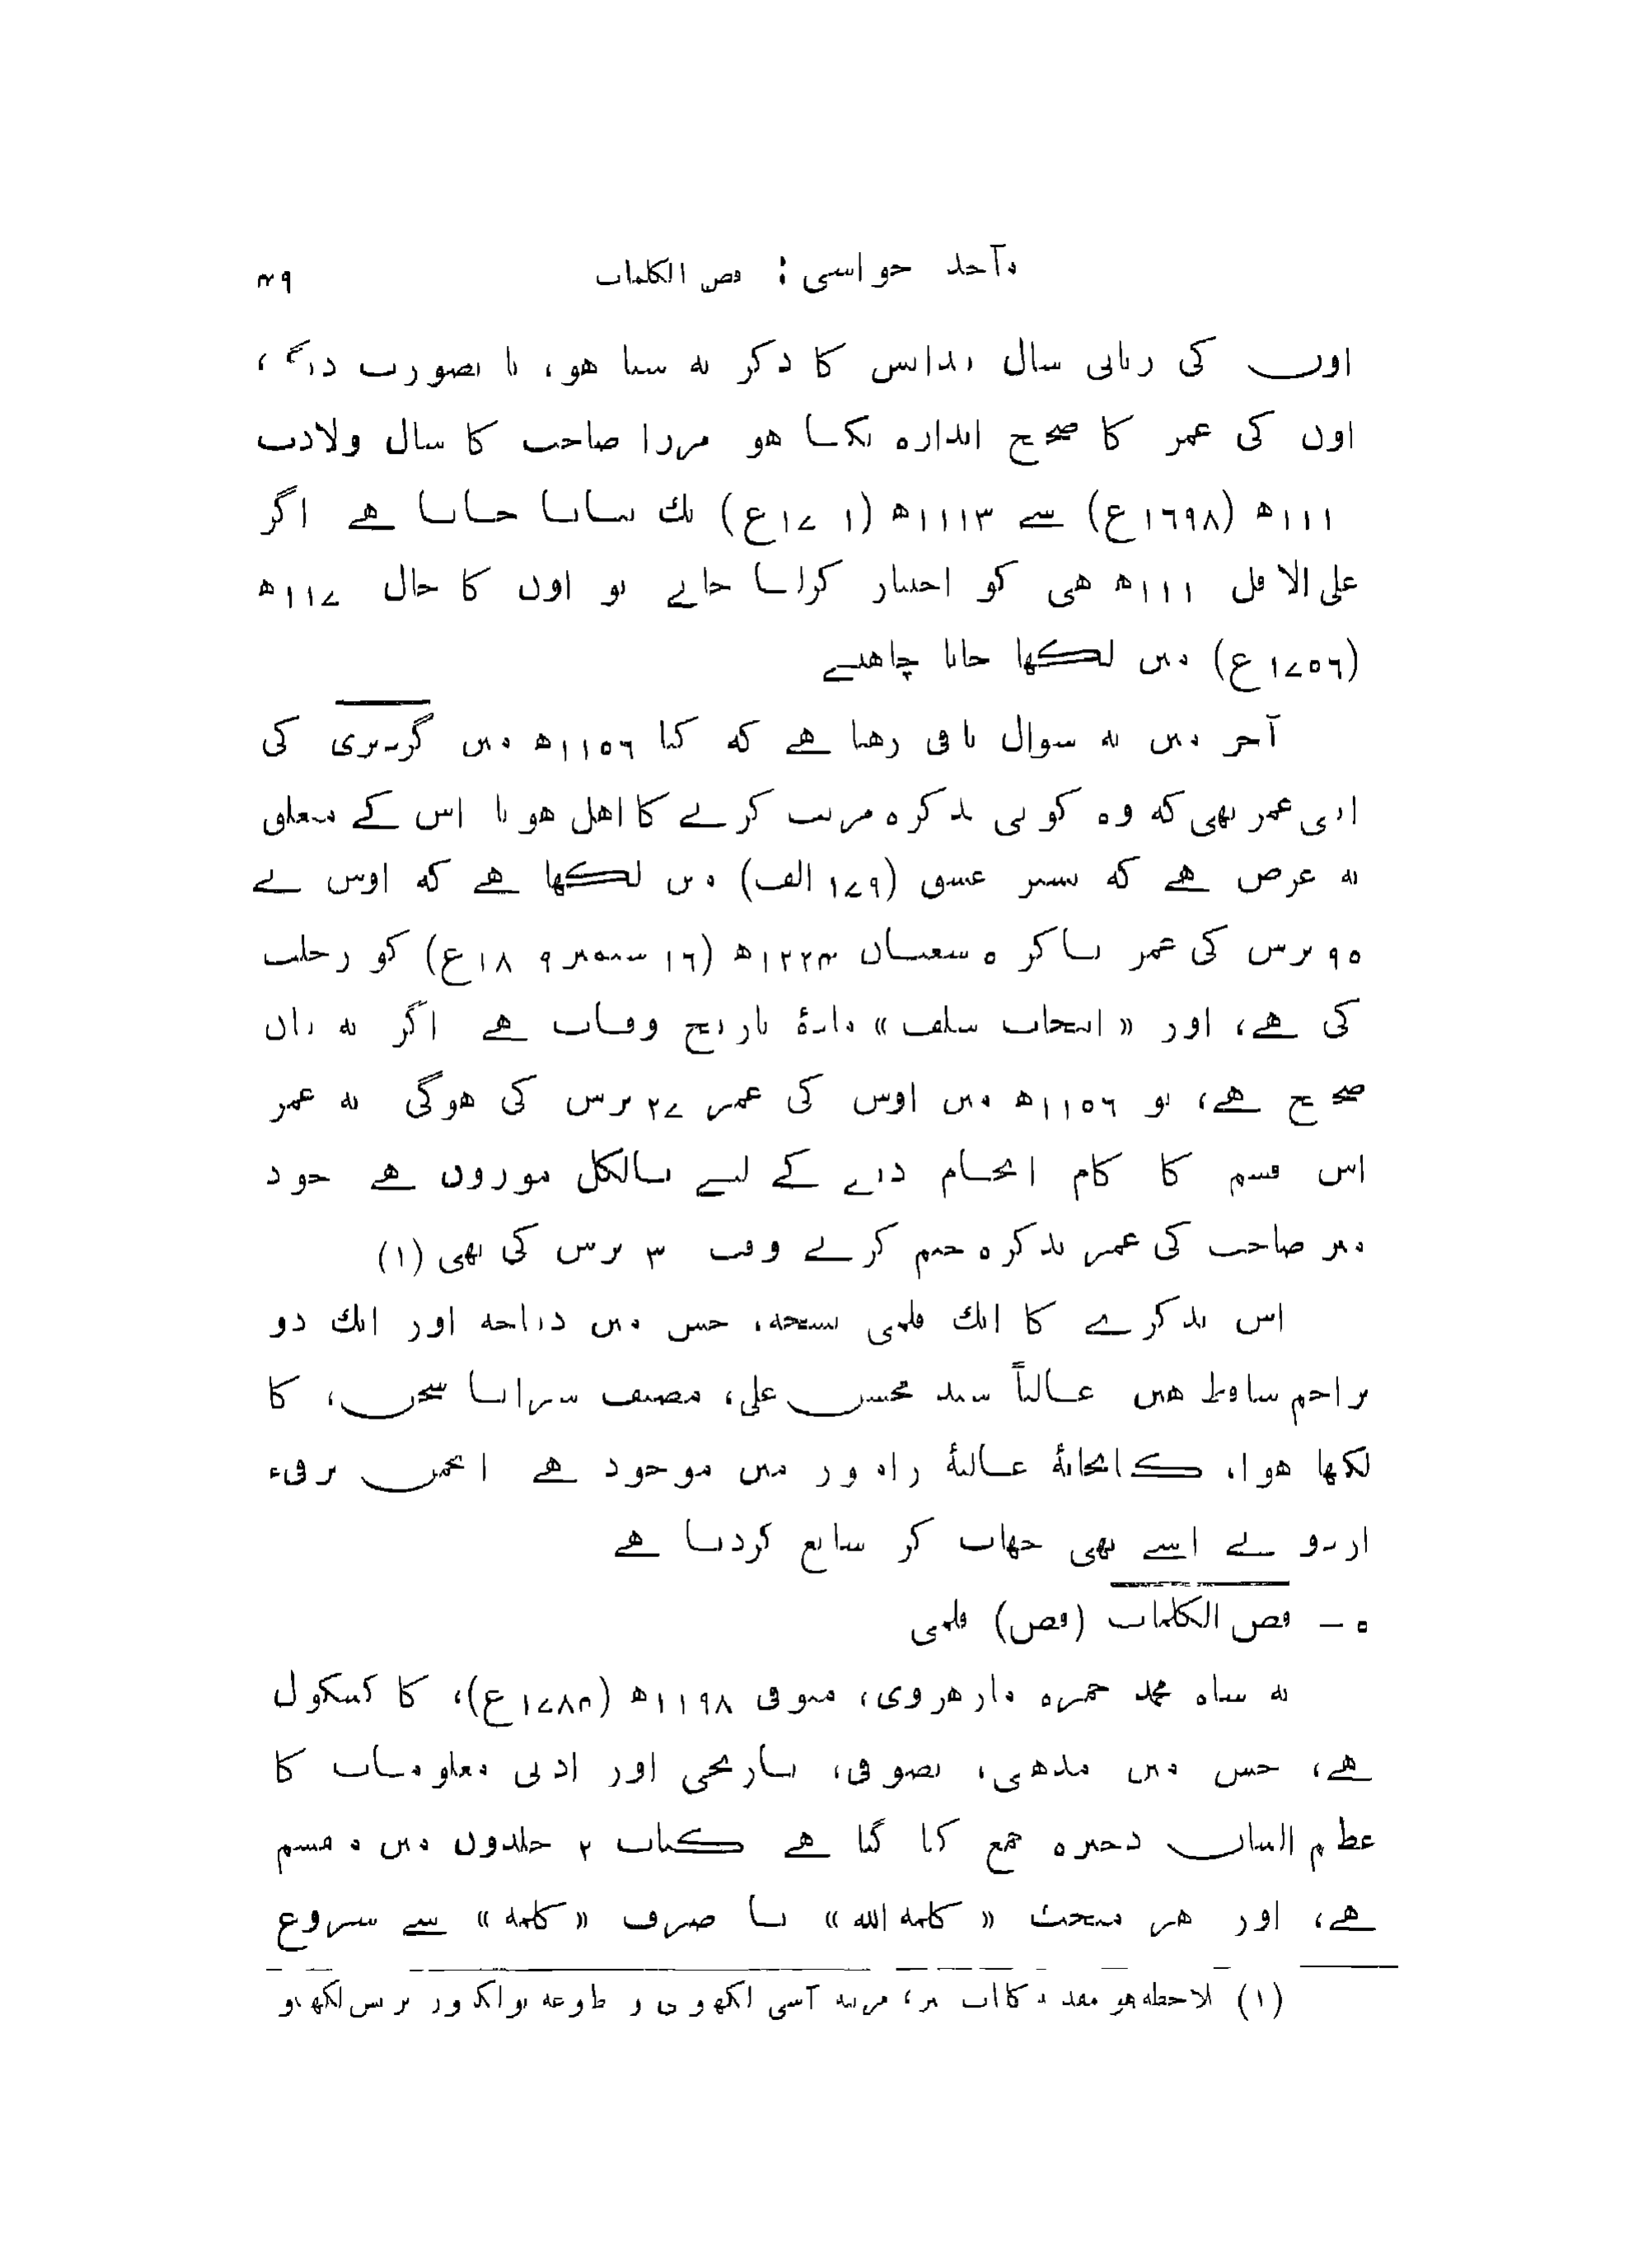 مآخذ حواشی : فص الکلمات ۴۹
اون کی زبانی سال پیدایش کا ذکر نه سنا هو، یا بصورت دیگر،
اون کی عمر کا صحیح اندازه نکیا هو مرزا صاحب کا سال ولادت
۱۱۱ھ (۱٦۹۸ع) سے ۱۱۱۳ھ (۱ ۱۷ع) تك بتایا جاتا هے اگر
علی الاقل ۱۱۱ھ هی کو اختیار کرلیا جاے تو اون کا حال ۱۱۷ھ
(۱۷٥٦ع) میں لکھا جانا چاهئے
آخر میں یه سوال باقی رهتا هے که کیا ۱۱٥٦ھ میں گردیزی کی
اتنی عمر تھی که وه کوئی تذکره مرتب کرنے کا اهل هوتا اس کے متعلق
یه عرض هے که نشتر عشق (۱۷۹ الف) میں لکھا هے که اوس نے
۹٥ برس کی عمر پاکر ٥ شعبان ۱۲۲۴ھ (۱٦ ستمبر ۹ ۱۸ع) کو رحلت
کی هے، اور «انتخاب سلف» مادۂ تاریخ وفات هے اگر یه بیان
صحیح هے، تو ۱۱٥٦ھ میں اوس کی عمر ۲۷ برس کی هوگی یه عمر
اس قسم کا کام انجام دینے کے لیے بالکل موزوں هے خود
میر صاحب کی عمر تذکره ختم کرتے وقت ۳ برس کی تھی (۱)
اس تذکرے کا ایك قلمی نسخه، جس میں دیباچه اور ایك دو
تراجم ساقط هیں غالباً سید محسن علی، مصنف سراپا سخن، کا
لکھا هوا، کتابخانۂ عالیۂ رامپور میں موجود هے انجمن ترقیء
اردو نے اسے بھی چھاپ کر شایع کردیا هے
٥ – فص الکلمات (فص) قلمی
یه شاه محمد حمزه مارهروی، متوفی ۱۱۹۸ھ (۱۷۸۴ع)، کا کشکول
هے، جس میں مذهبی، تصوفی، تاریخی اور ادبی معلومات کا
عظیم الشان ذخیره جمع کیا گیا هے کتاب ۲ جلدوں میں منقسم
هے، اور هر مبحث «کلمه الله» یا صرف «کلمه» سے شروع
(۱) ملاحظه هو مقدمه کلیات میر، مرتبه آسی لکھنوی و مطبوعه نولکشور پریس لکھنو